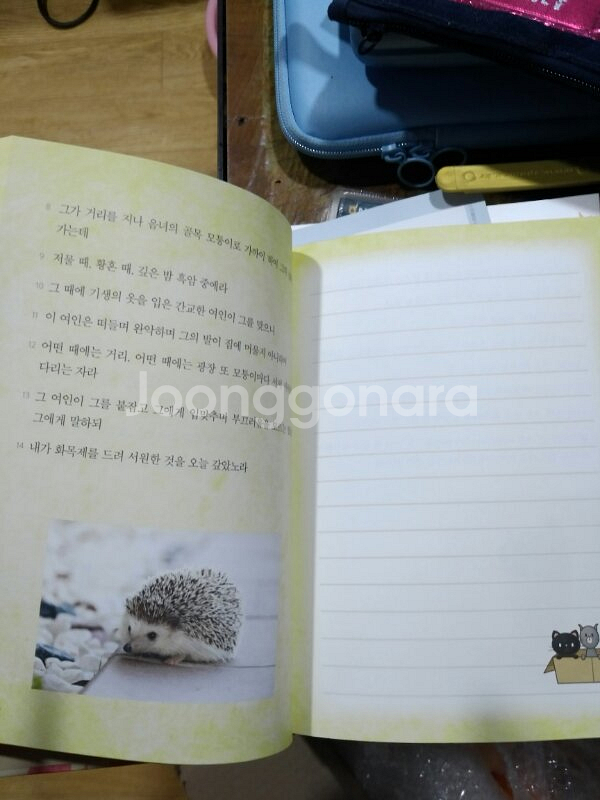 8 그가 거리를 지나 음녀의 골목 모퉁이로 가까이 하여
가는데
9 저물 때, 황혼 때, 깊은 밤 흑암 중에라
10 그 때에 기생의 옷을 입은 간교한 여인이 그를 맞으니
11 이 여인은 떠들며 완악하며 그의 발이 집에 머물지 아니하여
12 어떤 때에는 거리, 어떤 때에는 광장 또 모퉁이마다 서서
다리는 자라
13 그 여인이 그를 붙잡고 그에게 입맞추며 부끄러움을
그에게 말하되
14 내가 화목제를 드려 서원한 것을 오늘 갚았노라
Joonggonara